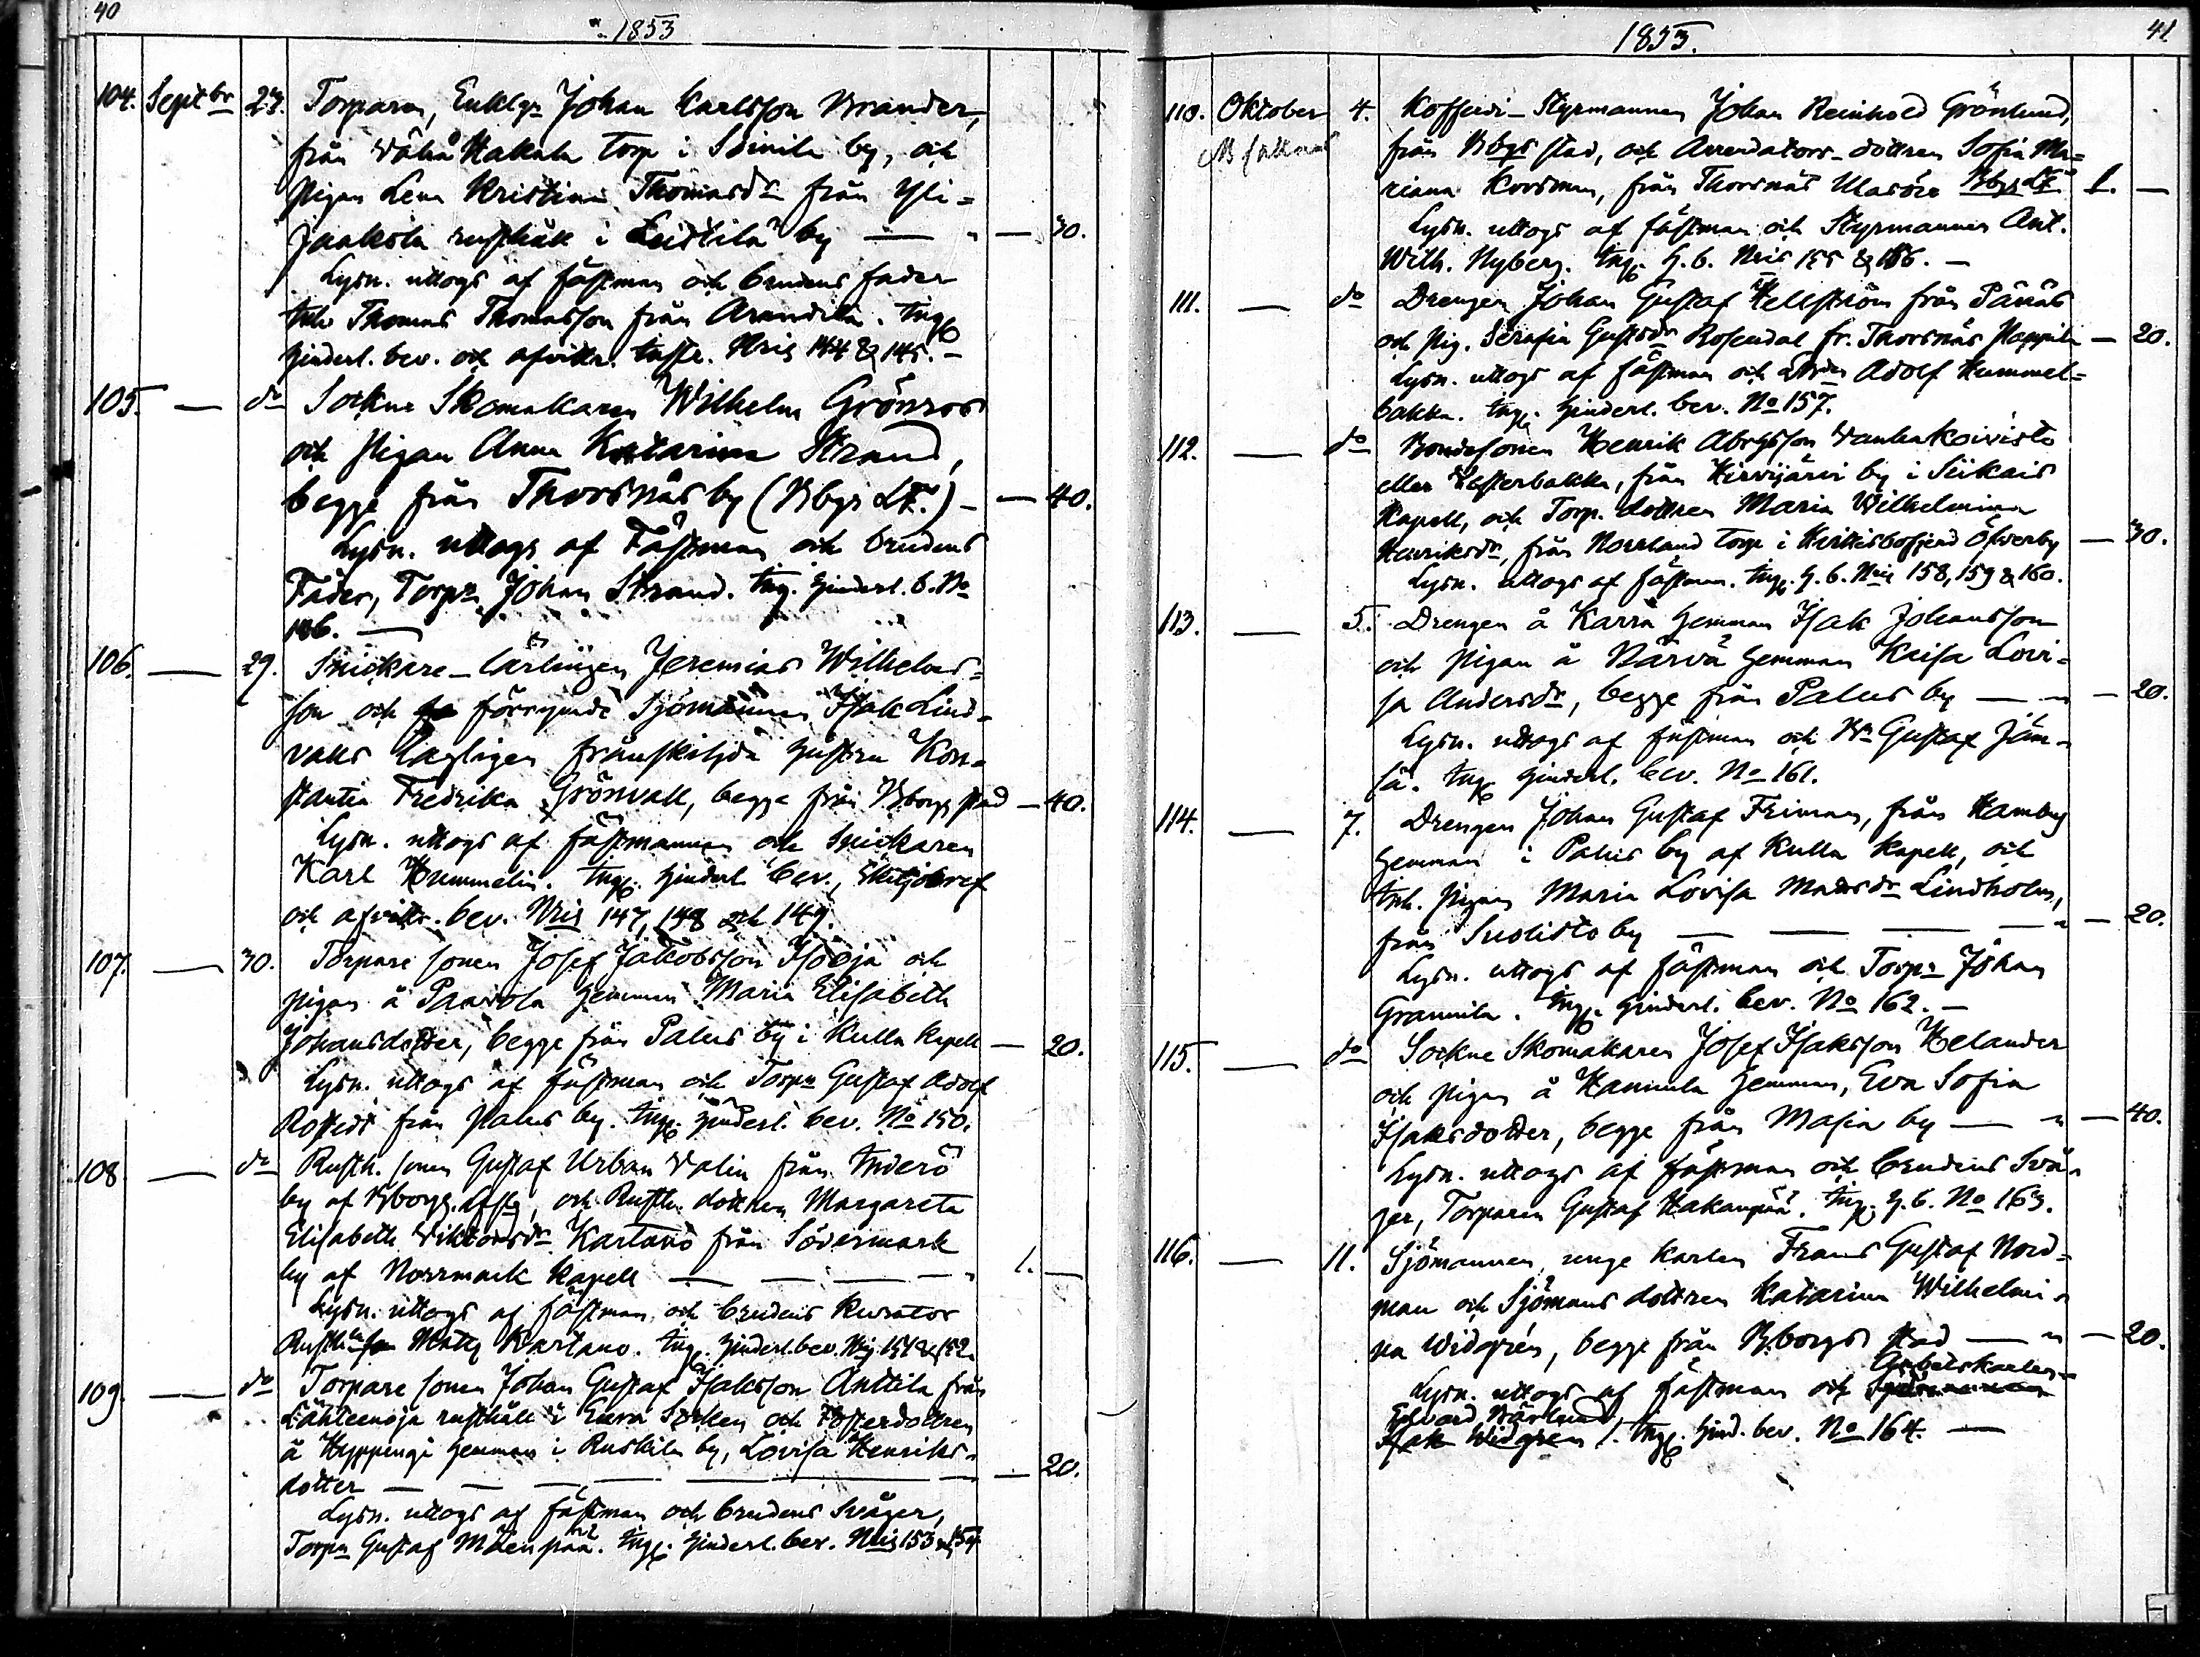 40
1853
104. Septbr 27. Torparen, Enklgn Johan Karlsson Brander,
från Vähä Hakala torp i Soinila by, och
Pigan Lena Kristina Thomasdr från Yli-
Jaakola rusthåll i Leistilä by — „ — 30.
Lysn. uttogs af fästman och brudens fader
Inh. Thomas Thomasson från Arandila. Ingp
hinderl. bev. och afvittr. Nris 144 & 145. —
105. — do Sockne Skomakaren Wilhelm Grönroos
och Pigan Anna Katarina Strand,
begge från Thorsnäs by (Bbgs LF.) — — 40.
Lysn. uttogs af Fästman och brudens
Fader, Torpn Johan Strand. Ing. hinderl. b. No
146. —
106. — 29. Snickare-lärlingen Jeremias Wilhelms-
son och förrymde Sjömannen Isak Lind-
valls lagligen frånskiljda hustru Kon-
stantia Fredrika Grönvall, begge från Bborgs stad — 40.
Lysn. uttogs af fästmannen och Snickaren
Karl Hummelin. Ingp. hinderl. bev., Skiljobref
och afvittr. bev. Nris 147, 148 och 149.
107. — 30. Torpare sonen Josef Jakobsson Isooja och
pigan å Paavola hemman Maria Elisabeth
Johansdotter, begge från Palus by i Kulla kapell — 20.
Lysn. uttogs af fästman och Torpn Gustaf Adolf
från Palus by. Ingp. hinderl. bev. No 150.
108. — do Rusth. sonen Gustaf Urban Valin från Inderö
by af Bborgs. Lfsg, och Rusth. dottren Margareta
Elisabeth Viktorsdr Kartano från Södermark
by af Norrmark kapell — — — — „ 1. —
Lysn. uttogs af fästman och brudens Kurator
Rusth. son Matts Kartano. Ingp. hinderl. bev. Nris 151 & 152.
109. — do Torpare sonen Johan Gustaf Isaksson Anttila från
Lähteenoja rusthåll i Eura Socken och Fosterdottren
å Hyppingi hemman i Ruskila by, Lovisa Henriks-
dotter — — — — — 20.
Lysn. uttogs af fästman och brudens Svåger,
Torpn Gustaf Mäenpää. Ingp. hinderl. bev. Nris 153 & 154
41
1853.
110. Oktober 4. Kofferdi-Styrmannen Johan Reinhold Grönlund,
från Bbgs stad, och Arrendators-dottren Sofia Ma-
riana Korsman, från Thorsnäs Ulasöre Bbgs LF. 1. —
Lysn. uttogs af fästman och Styrmannen Ant.
Wilh. Nyberg. Ingp. h. b. Nris 155 & 156. —
111. — do Drengen Johan Gustaf Hellström från Pänäs
och Pig. Serafia Gustdr Rosendal fr. Thorsnäs Pappila — 20.
Lysn. uttogs af fästman och Adolf Hummel-
bakka. Ingp. hinderl. bev. No 157.
112. — do Bondesonen Henrik Abrgsson Vanhakoivisto
eller Westerbakka, från Hirvijärvi by i Siikais
Kapell, och Torp. dottren Maria Wilhelmina
Henriksdr, från Norrland torp i Hvittisbofjerd Öfverby — 30.
Lysn. uttogs af fästman. Ingp. h. b. Nris 158, 159 & 160.
113. — 5. Drengen å Karra hemman Isak Johansson
och Pigan å Närvä hemman Kaisa Lovi-
sa Andersdr, begge från Palus by — „ — 20.
Lysn. uttogs af fästman och Bn Gustaf Jäm-
sä. Ingp. hinderl. bev. No 161.
114. — 7. Drengen Johan Gustaf Friman, från Hamby
hemman i Palus by af Kulla kapell, och
Inh. Pigan Maria Lovisa Madsdr Lindholm,
från Suolisto by — — — — „ — 20.
Lysn. uttogs af fästman och Torpn Johan
Grannila. Ingp. hinderl. bev. No 162. —
115. — do Sockne Skomakaren Josef Isaksson Helander
och pigan å Hannula hemman, Eva Sofia
Isaksdotter, begge från Masia by — „ — 40.
Lysn. uttogs af fästman och brudens Svå-
ger, Torparen Gustaf Hakanpää. Ingp. h. b. No 163.
116. — 11. Sjömannen, unge karlen Frans Gustaf Nord-
man och Sjömans dottren Katarina Wilhelmi-
na Widgrén, begge från Bborgs stad — „ — 20.
Arbetskarlen
Lysn. uttogs af fästman och Sjömannen
Edvard Bärlund
Isak Widgren /. Ingp. hind. bev. No 164. —